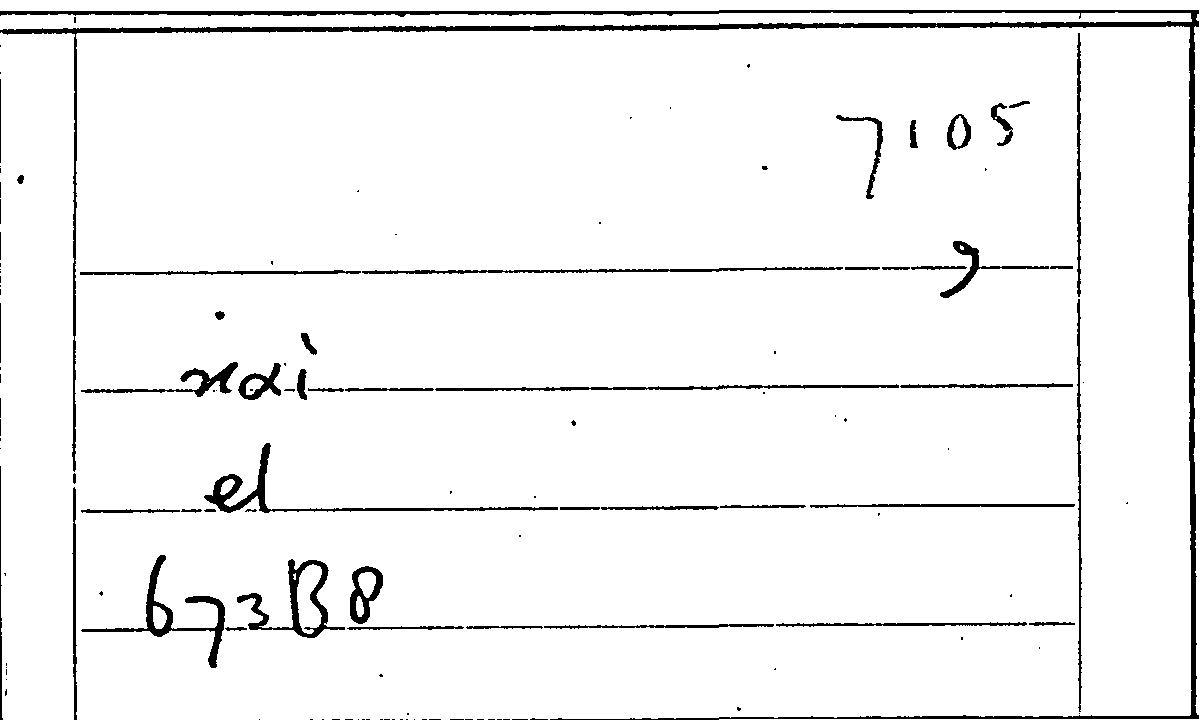 7105
9
xai
el
673B8